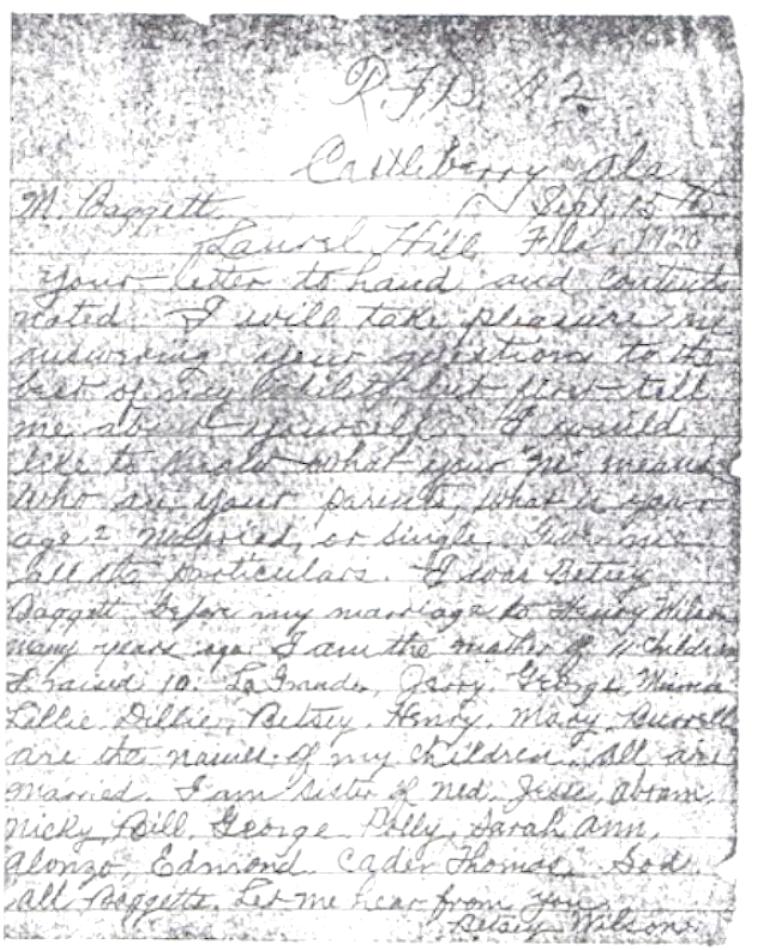 R.F.D. #2
Castleberry Ala
M. Baggett Sept. 15th
Laurel Hill, Fla. 1920
Your letter to hand and contents
noted. I will take pleasure in
answering your questions to the
best of my ability but first tell
me about yourself. I would
like to know what your "M" means
Who are your parents, what is your
age? Married, or single. Give me
all the particulars. I was Betsey
Baggett before my marriage to Henry Wilson
many years ago. I am the mother of 11 children
I raised 10. Jerry, George, Minnie
Lillie Dillie, Betsey, Henry, Mary, Burrell
are the names of my children. All are
married. I am sister of Ned, Jesse, Abram,
Nicky, Bill, George, Polly, Sarah Ann,
Alonzo, Edmond, Cader Thomas,
all Baggetts. Let me hear from you.
Betsey Wilson